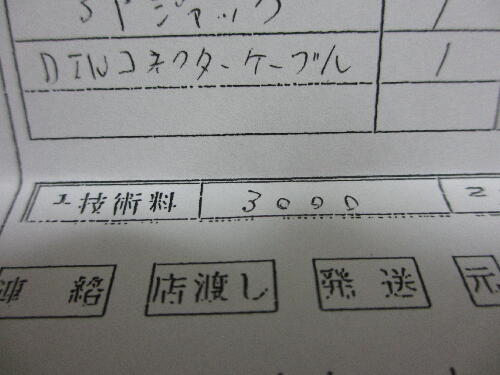 SPジャック 1
DINコネクターケーブル 1
1 技術料 3000 2
連絡 店渡し 発送 元